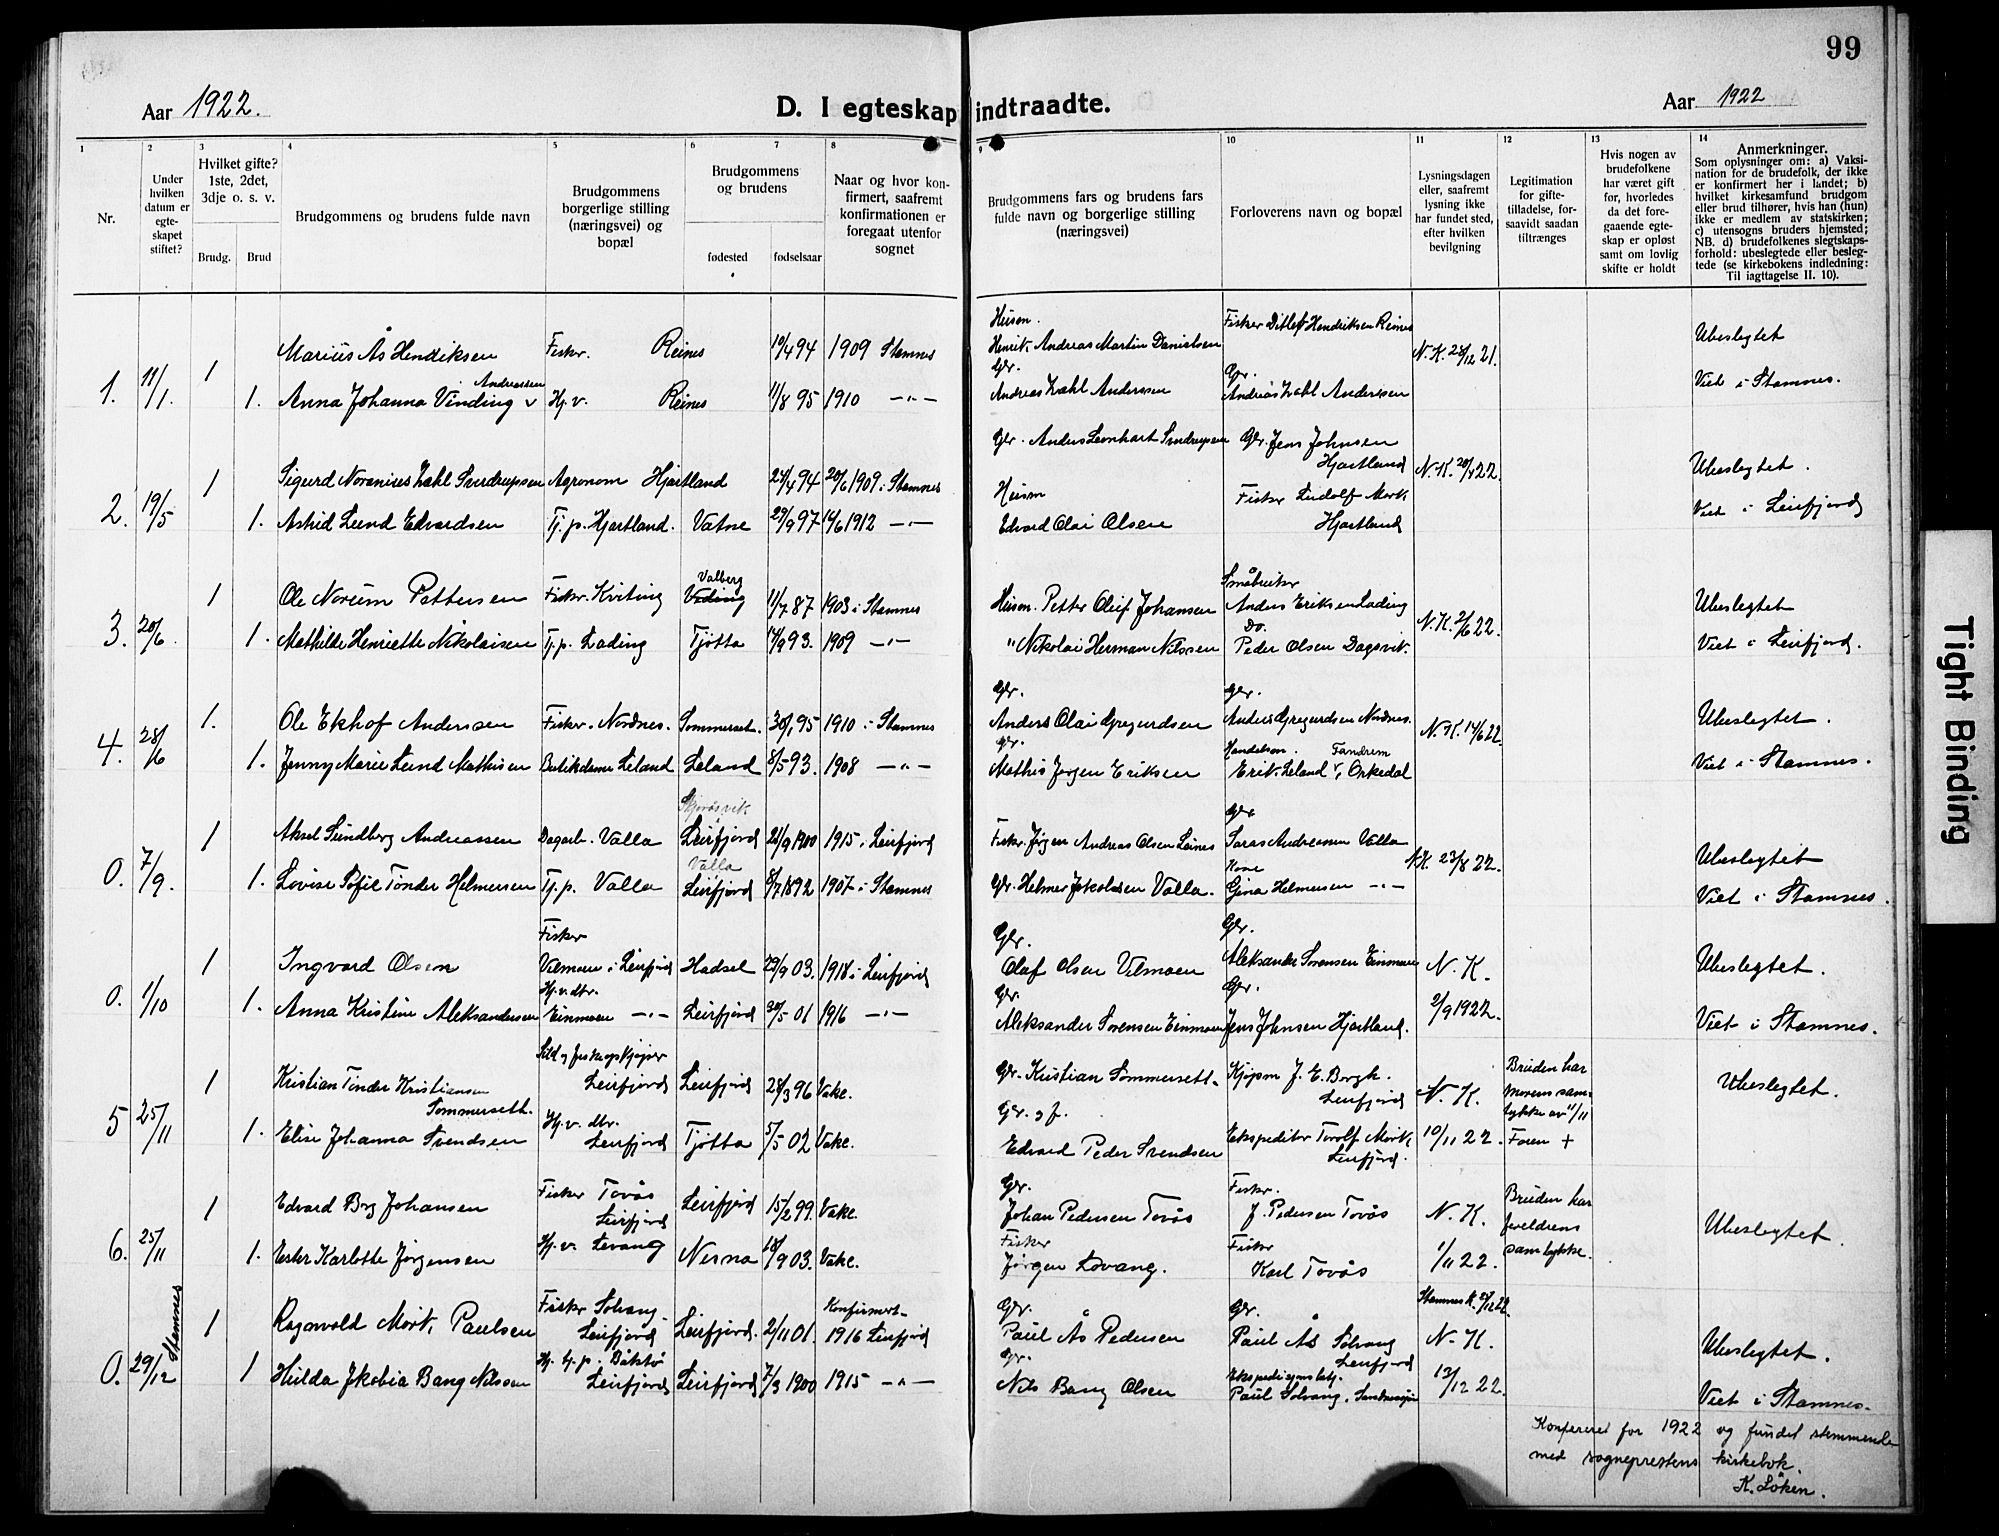 99
Aar 1922.
D. I egteskap indtraadte.
Aar 1922
1
2
3
4
5
6
7
8
9
10
11
12
13
14
Nr.
Under
hvilken
datum er
egte-
skapet
stiftet?
Hvilket gifte?
1ste, 2det,
3dje o. s. v.
Brudg.
Brud
Brudgommens og brudens fulde navn
Brudgommens
borgerlige stilling
(næringsvei) og
bopæl
Brudgommens
og brudens
fødested
fødselsaar
Naar og hvor kon-
firmert, saafremt
konfirmationen er
foregaat utenfor
sognet
Brudgommens fars og brudens fars
fulde navn og borgerlige stilling
(næringsvei)
Forloverens navn og bopæl
Lysningsdagen
eller, saafremt
lysning ikke
har fundet sted,
efter hvilken
bevilgning
Legitimation
for gifte-
tilladelse, for-
saavidt saadan
tiltrænges
Hvis nogen av
brudefolkene
har været gift
før, hvorledes
da det fore-
gaaende egte-
skap er opløst
samt om lovlig
skifte er holdt
Anmerkninger.
Som oplysninger om: a) Vaksi-
nation for de brudefolk, der ikke
er konfirmert her i landet; b)
hvilket kirkesamfund brudgom
eller brud tilhører, hvis han (hun)
ikke er medlem av statskirken;
c) utensogns bruders hjemsted;
NB. d) brudefolkenes slegtskaps-
forhold: ubeslegtede eller beslegte-
tede (se kirkebokens indledning:
Til iagttagelse II. 10).
1. 11/1.
1 Marius Ås Hendiksen Fisker. Reines 10/4 94 1909 Stamnes
Husm.
Henrik Andreas Martin Danielsen
Fisker Ditlef Hendriksen Reines
N. K. 28/12 21.
Ubeslegtet
Andreassen
1. Anna Johanna Vinding v Hj. v. Reines 11/8 95 1910 —"—
Gbr.
Andreas Zahl Anderssen
Gbr.
Andreas Zahl Anderssen
Viet i Stamnes.
2. 19/5
1 Sigurd Noranius Zahl Sverdrupsen Agronom Hjartland 24/4 94 20/6 1909 i Stamnes
Gbr. Anders Leonhart Sverdrupsen
Gbr. Jens Johnsen
Hjartland
N. K. 20/4 22.
Ubeslegtet.
1. Astrid Lund Edvardsen Tj. p. Hjartland. Vatne 27/9 97 16/6 1912 —"—
Husm
Edvard Olai Olsen
Fisker Ludolf Mork
Hjartland
Viet i Leirfjord
3. 20/6.
Valberg
1 Ole Norum Pettersen Fisker. Kviting 11/7 87 1903 i Stamnes
Husm. Petter Oluf Johansen
Småbruker
Anders Eriksen Lading
N. K. 2/6 22.
Ubeslegtet
1. Mathilde Henriette Nikolaisen Tj. p. Lading Tjötta 14/9 93. 1909 —"—
" Nikolai Herman Nilssen
Do.
Peder Olsen Dagsvik.
Viet i Leirfjord.
4. 28/6
1. Ole Ekhof Anderssen Fisker. Nordnes. Sommerset. 30/1 95 1910 i Stamnes
Gbr.
Anders Olai Gregersdsen
Gbr.
Anders Gregersdsen Nordnes.
N. K. 14/6 22.
Ubeslegtet.
1. Jenny Marie Lund Mathisen Butikdame Leland Leland 8/5 93. 1908 —"—
Gbr.
Mathis Jørgen Eriksen
Handelsm. Fandrem
Erik Leland v, Orkedal
Viet i Stamnes.
0. 7/9.
1 Aksel Sundberg Andreassen Dagarb. Valla Leirfjord 21/9 1900 1915 i Leirfjord
Fisker. Jörgen Andreas Olsen Leines
Gbr
Andreassen Valla
N. K. 23/8 22.
Ubeslegtet
Valla
1. Lovise Bofie Tönder Helmersen Tj. p. Valla Leirfjord 8/7 1892 1907 i Stamnes
Gbr. Helmer Jakobsen Valla.
Kone
Gina Helmersen —"—
Viet i Stamnes.
0. 1/10
Fisker
1 Ingvard Olsen Ulmoen i Leirfjord Hadsel 29/9 03. 1918 i Leirfjord
Gbr.
Olaf Olsen Ulmoen
Gbr.
Aleksander Sörensen Einmoen
N. K.
Ubeslegtet.
Hj. v. dtr.
1. Anna Kristine Aleksandersen Einmoen —"— Leirfjord 30/5 01 1916 —"—
Gbr.
Aleksander Sörensen Einmoen
Gbr.
Jens Johnsen Hjartland.
2/9 1922.
Viet i Stamnes.
5 25/11
1 Kristian Tönder Kristiansen
Sommerseth.
Leirfjord Leirfjord 28/3 96 Vake.
Gbr. Kristian Sommersett.
Kjøpm J. E. Borgh.
Leirfjord
N. K.
Bruden har
morens sam-
tykke av 11/11
Ubeslegtet.
1. Elise Johanna Svendsen
Hj. v. dtr.
Leirfjord Tjötta 5/5 02 Vake.
Gbr. og f.
Edvard Peder Svendsen
Ekspeditør Torolf Mørk,
Leirfjord.
10/11 22.
Faren +
6. 25/11
1 Edvard Borg Johansen
Fisker Tovås
Leirfjord Leirfjord 15/2 99. Vake.
Gbr.
Johan Pedersen Tovås
Fisker.
J. Pedersen Tovås
N. K.
Bruden har
foreldrens
samtykke.
Ubeslegtet.
1. Ester Karlotte Jørgensen Hj. v. Levang Nesna 18/9 03. Vake.
Fisker
Jörgen Lovang.
Fisker
Karl Tovås
1/11 22.
0. 29/12 Stamnes
1 Ragnvald Mørk, Paulsen
Fisker Solvang
Leirfjord Leirfjord. 2/11 01.
Konfirmert
1916 Leirfjord
Gbr.
Paul Ås Pedersen
Gbr.
Paul Ås Solvang
Leirfjord
N. K.
Ubeslegtet.
1 Hulda Jakobia Bang Nilssen
Leirfjord Leirfjord 7/3 1900 1915 —"—
Gbr.
Nils Bang Olsen
Paul Solvang, Sandnessjøen
13/12 22.
Viet i Stamnes.
Konfereret for 1922 og fundet stemmende
med sogneprestens kirkebok.
K. Löken.
Tight Binding